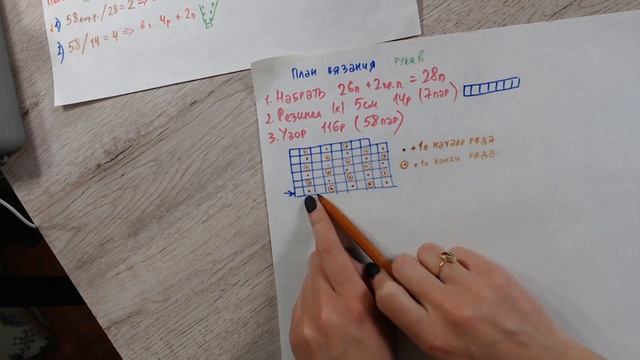 1) 58 / 28 = 2 ⇒ в
2) 58 / 14 = 4 ⇒ в с. 4р + 2п
План вязания рукав
1. Набрать 26п + 2кр.п = 28п
2. Резинка 1х1 5см 14р (7пар)
3. Узор 116р (58пар)
• +1п начало ряда
+1п конец ряда